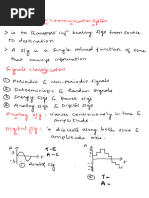 Communication System
> is to Transport inf bearing Sigs from Source
to destination
> A Sig is a Single valued function of time
that conveys information
Signals Classification
① Periodic & Non-periodic Signals
② Deterministic & Random Signals
③ Energy Sigs & Power Sigs
④ Analog Sigs & Digital Sigs
Analog Sig: varies Continuously in time &
amplitude
Digital Sig: is discrete along both time &
amplitude
T-C
A-C
Analog Sig
T-
A-